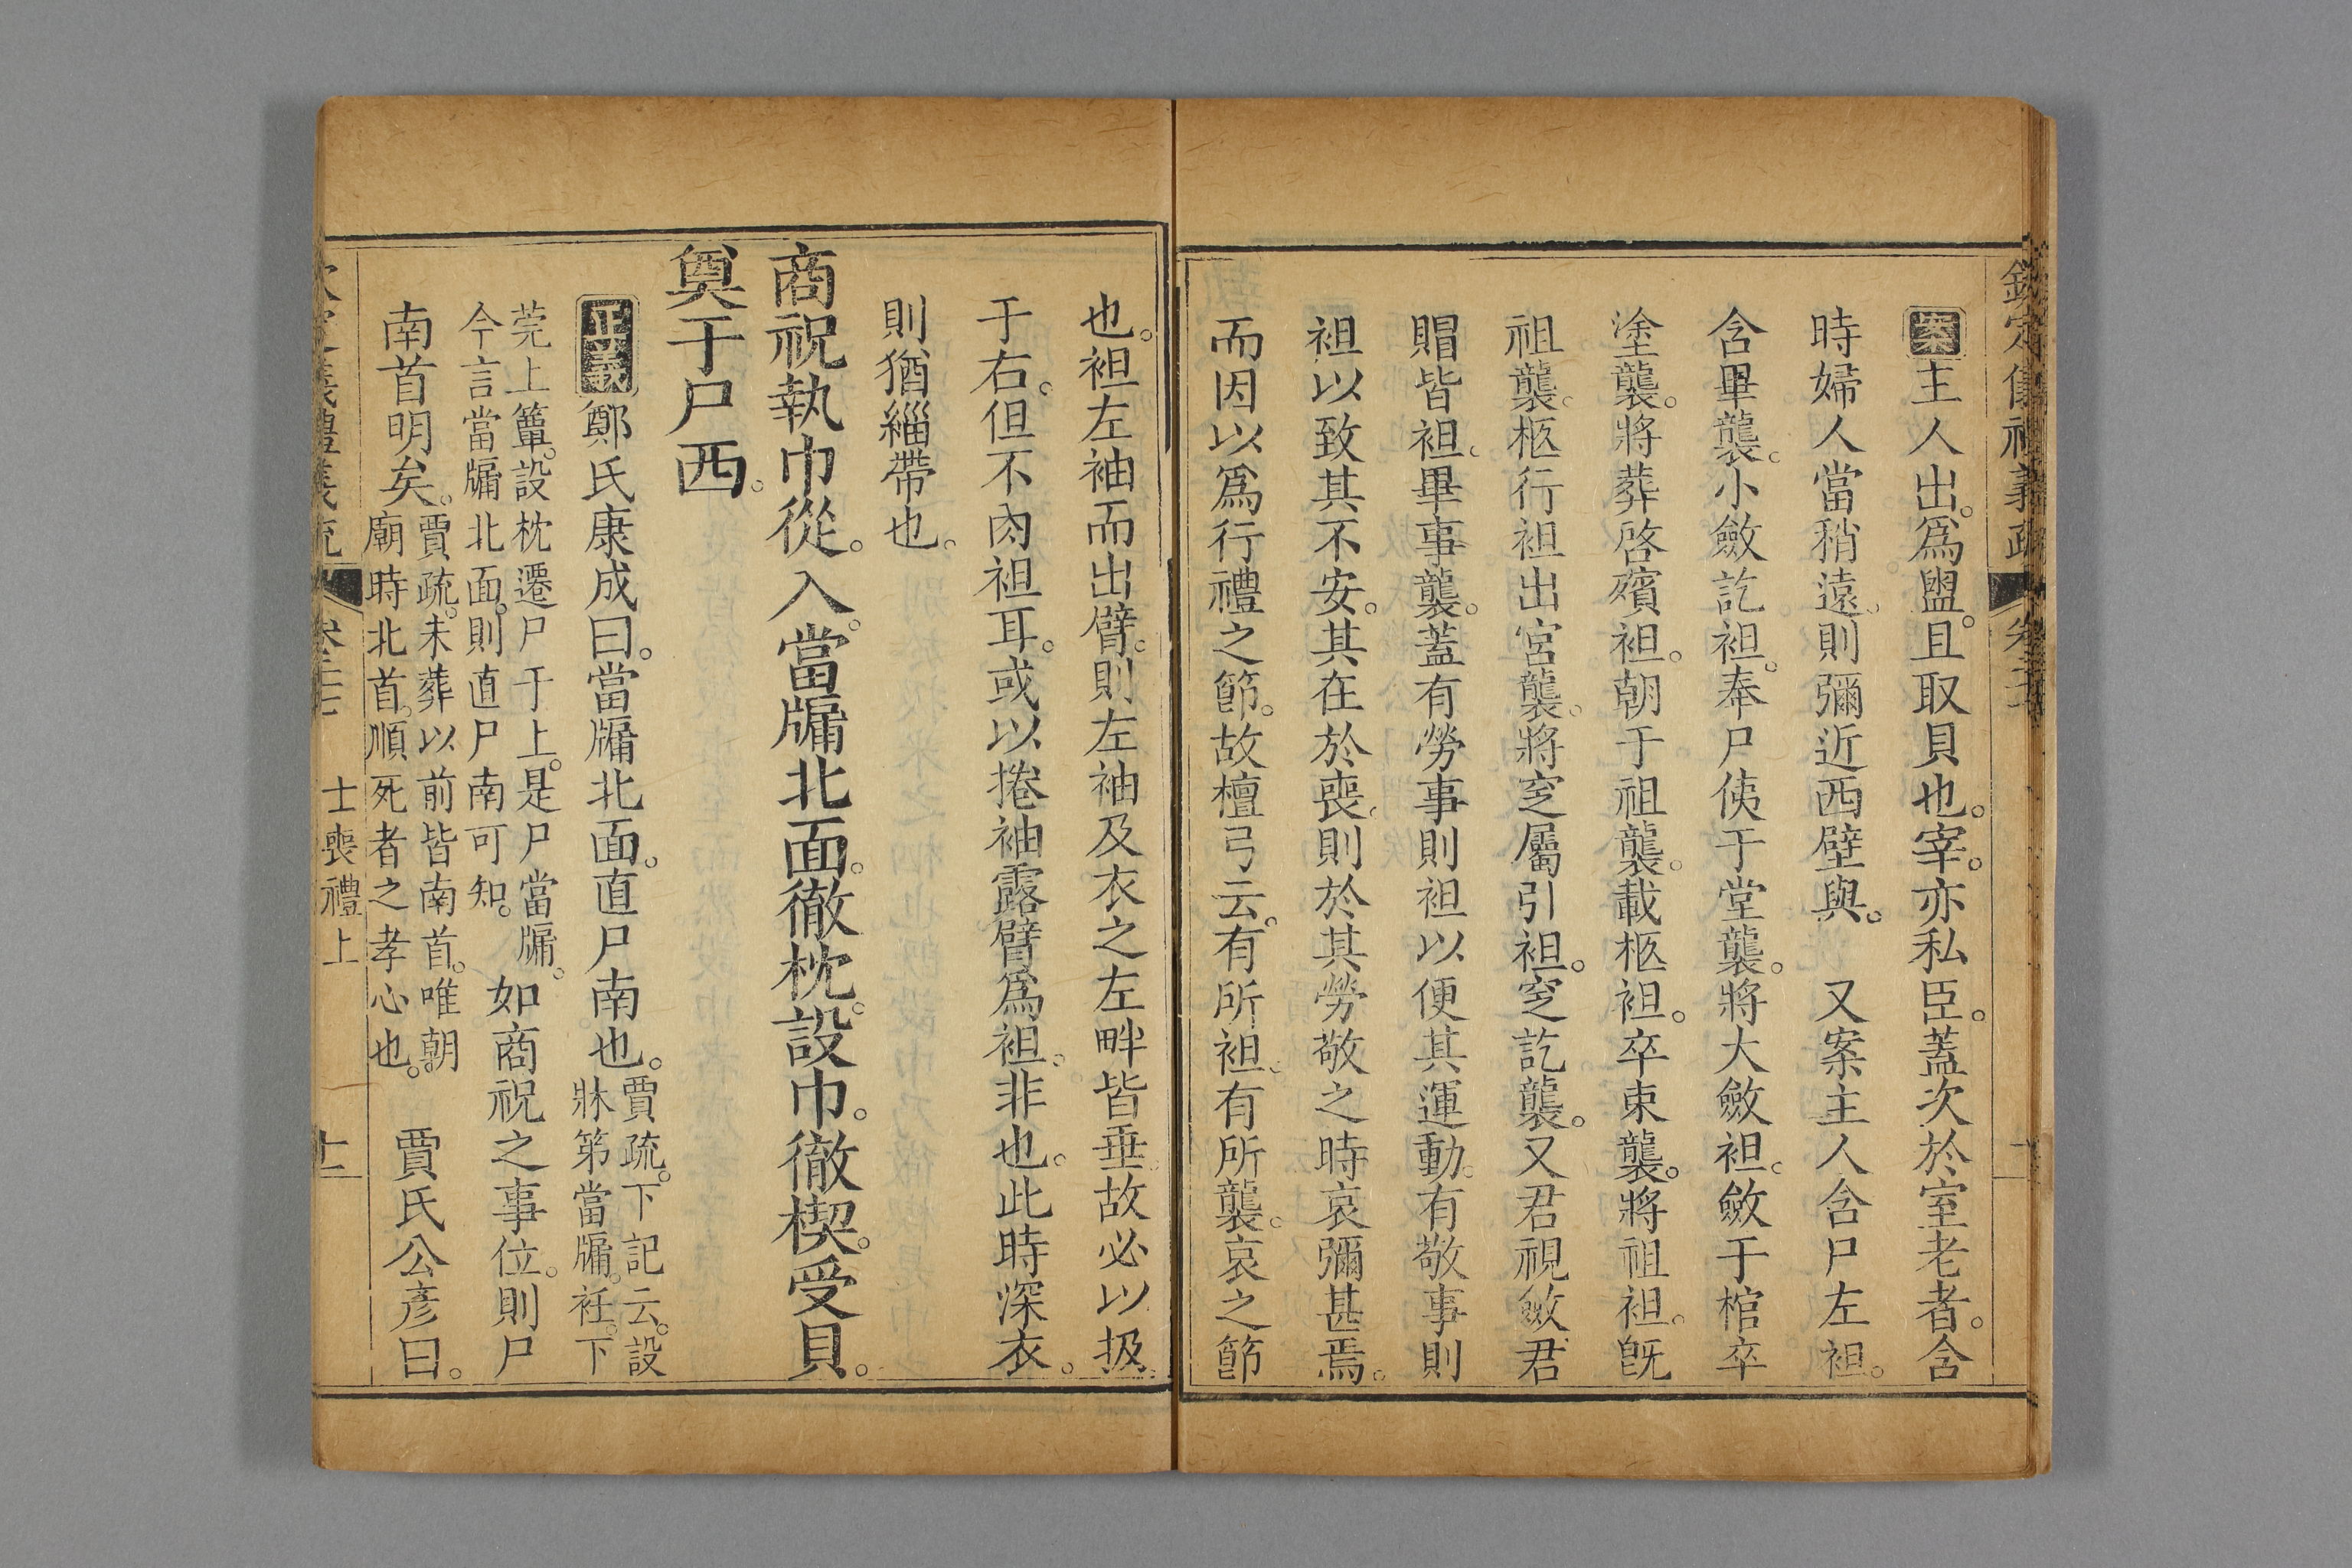 欽定儀禮義疏
案主人出。爲盥。且取貝也。宰。亦私臣。蓋次於室老者。含
時婦人當稍遠。則彌近西壁與。　又案主人含尸左袒。
含畢襲。小斂訖袒。奉尸侇于堂襲。將大斂袒。斂于棺卒
塗襲。將葬啓殯袒。朝于祖襲。載柩袒。卒束襲。將祖袒。旣
祖襲。柩行袒出宮襲。將窆屬引袒。窆訖襲。又君視斂君
賵皆袒。畢事襲。蓋有勞事則袒以便其運動。有敬事則
袒以致其不安。其在於喪。則於其勞敬之時哀彌甚焉。
而因以爲行禮之節。故檀弓云。有所袒。有所襲。哀之節
也。袒左袖而出臂。則左袖及衣之左畔皆垂。故必以扱
于右。但不肉袒耳。或以捲袖露臂爲袒。非也。此時深衣。
則猶緇帶也。
商祝執巾從。入。當牖北面。徹枕。設巾。徹楔。受貝。
奠于尸西。
正義鄭氏康成曰。當牖北面。直尸南也。賈疏。下記云。設
牀第當牖。衽。下
莞上簟。設枕。遷尸于上。是尸當牖。
今言當牖北面。則直尸南可知。如商祝之事位。則尸
南首明矣。賈疏。未葬以前皆南首。唯朝
廟時北首。順死者之孝心也。賈氏公彥曰。
士喪禮上
十一